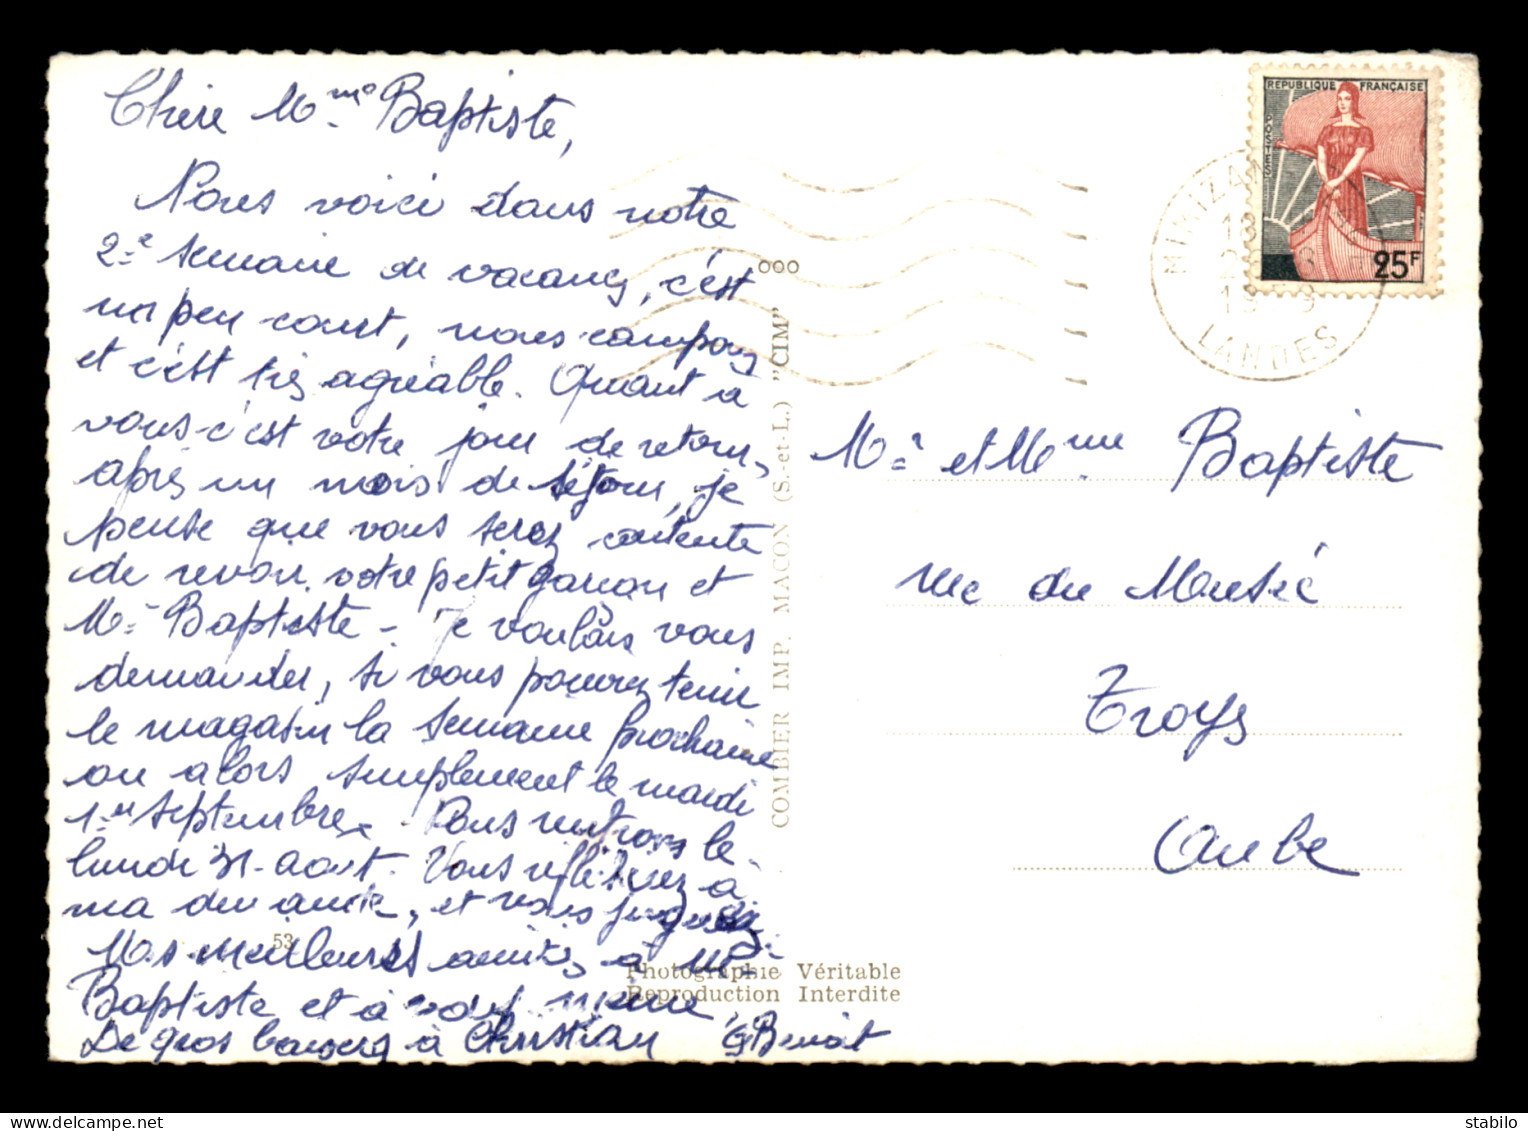 Chère Mme Baptiste,
Nous voici dans notre
2e semaine de vacances, c'est
un peu court, nous campons
et c'est très agréable. Quant à
vous c'est votre jour de retour,
après un mois de séjour, je
pense que vous serez contente
de revoir votre petit garçon et
Mr Baptiste - Je voulais vous
demander, si vous pouvez tenir
le magasin la semaine prochaine
ou alors simplement le mardi
1er septembre. Nous rentrons le
lundi 31 août. Vous réfléchirez à
ma demande, et vous jugerez.
Mes meilleures amitiés à Mr
Baptiste et à vous même,
De gros baisers à Christian GBenoit
53
OOO
COMBIER IMP. MACON (S.-et-L.) "CIM"
Photographie Véritable
Reproduction Interdite
REPUBLIQUE FRANÇAISE
POSTES
25F
MIMIZAN
13
1959
LANDES
Mr et Mme Baptiste
rue du Musée
Troyes
Aube
© stabilo